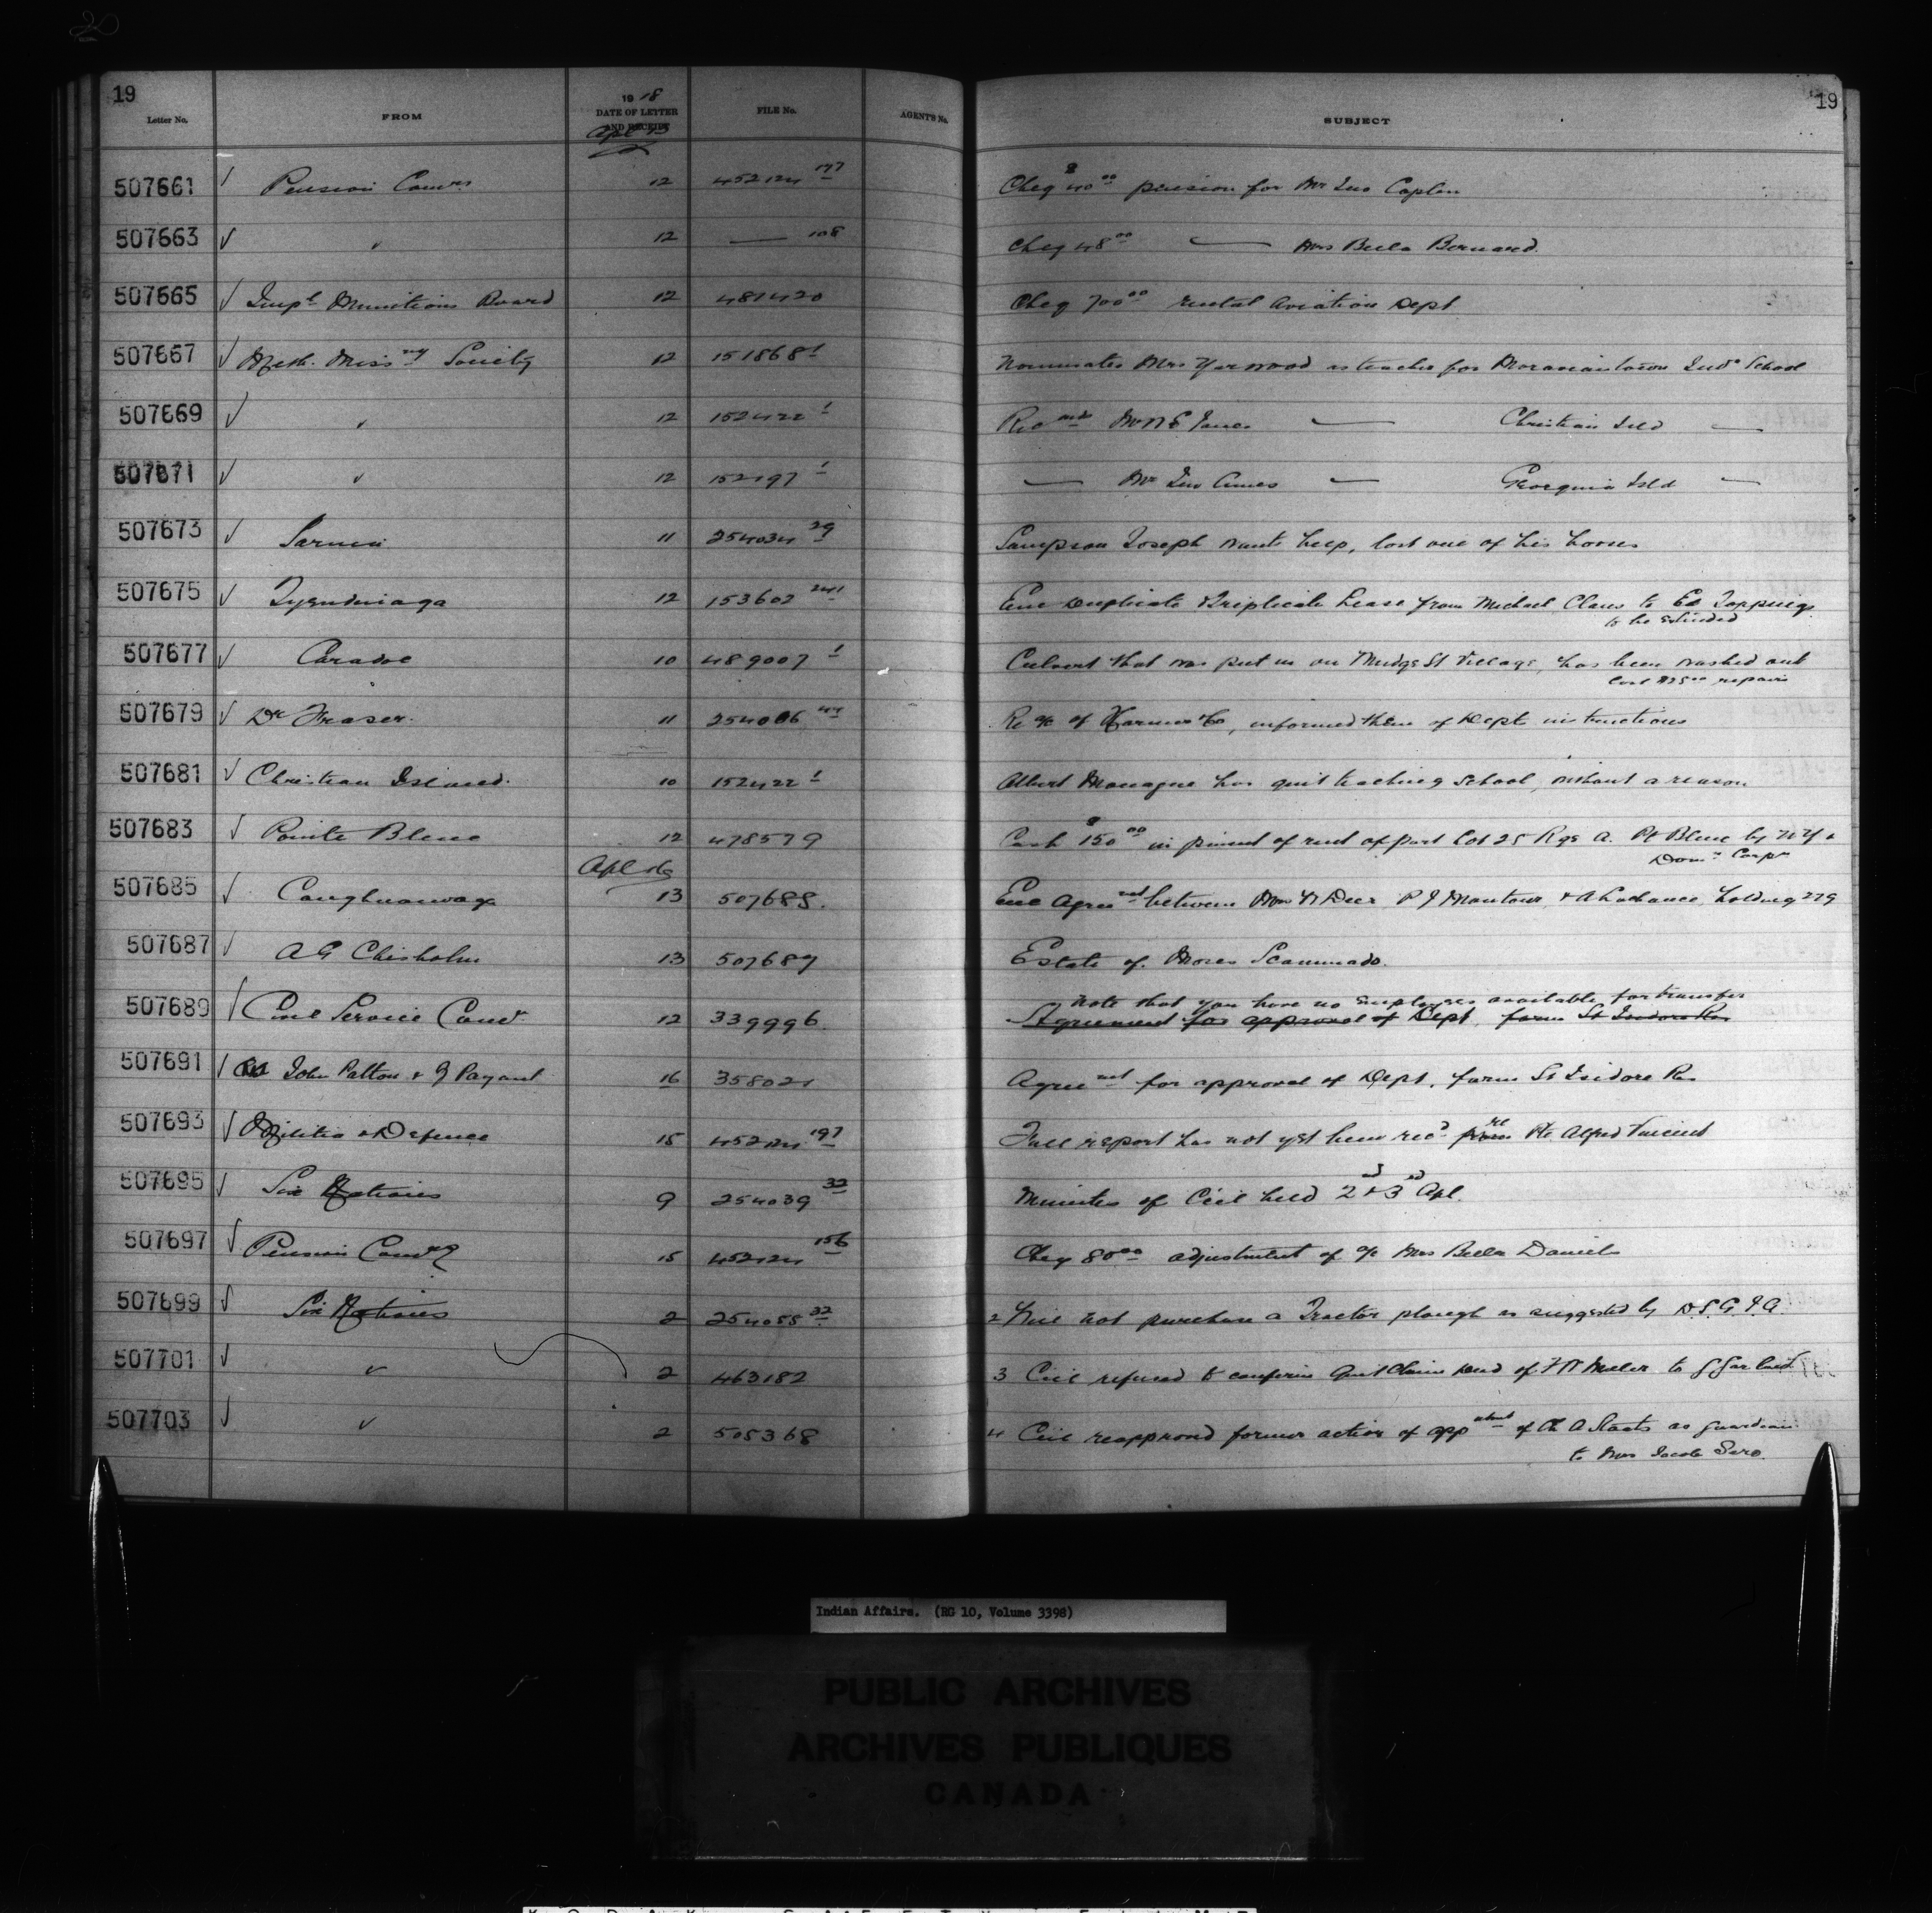 19 19
Letter No. FROM 1918 DATE OF LETTER AND RECEIPT FILE No. AGENT'S No. SUBJECT
Apl 15
507661 Pension Comrs 12 452124 177 Cheq $40 00 pension for Mr Jno Caplin
507663 " 12 — 108 Cheq 48 00 — Mrs Bella Bernard.
507665 Impl Munitions Board 12 487420 Cheq 700 00 rental Aviation Dept
507667 Meth. Miss ny Society 12 151868 1 Nominates Mrs Yarwood as teacher for Moraviantown Ind School
507669 " 12 152422 1 Rec mds — Christian Isld —
507671 " 12 152197 1 — Mr Jno Ames — Georgina Isld —
507673 Sarnia 11 254034 29 Sampson Joseph wants help, lost one of his horses
507675 Tyendinaga 12 153602 241 Enc Duplicate & Triplicate Lease from Michael Claus to Ed Toppings
to be extended
507677 Caradoc 10 489007 1 Culvert that was put in on Mudge St Village, has been washed out
Cost repairs
507679 Dr Fraser. 11 254006 44 Re a/c of & Co, informed them of Dept instructions
507681 Christian Island. 10 152422 1 Albert Monague has quit teaching school, without a reason
507683 Pointe Bleue 12 478579 Cash $150 00 in pment of rent of part Lot 25 Rge A. Pt Bleue by N Y &
Domn Corpn
Apl 16
507685 Caughnawaga 13 507685. Enc Agree mt between Deer P J Montour & A Lachance, holding 279
507687 A G Chisholm 13 507687 Estate of Moses Scammado.
note that you have no employees available for transfer
507689 Civil Service Comr. 12 339996. Agreement for approval of Dept, farm St Isidore Rs
507691 John Patton & J Payant 16 358021 Agree mt for approval of Dept, farm St Isidore Rs
507693 Militia & Defence 15 452124 197 Full report has not yet been rec'd from re Pte Alfred Vincent
507695 Six Nations 9 254039 32 Minutes of Ccil held 2nd & 3rd Apl.
507697 Pension Comrs 15 452124 156 Cheq 80 00 adjustment of a/c Mrs Bella Daniels
507699 Six Nations 2 254055 32 2 Will not purchase a Tractor plough as suggested by D.S.G.I.A.
507701 " 2 463182 3 Ccil refused to confirm Quit Claim Deed of F W Miller to G Garland
507703 " 2 505368 4 Ccil reapproved former action of app ntment of A Staats as guardian
to Mrs Jacob Sero.
Indian Affairs. (RG 10, Volume 3398)
PUBLIC ARCHIVES
ARCHIVES PUBLIQUES
CANADA